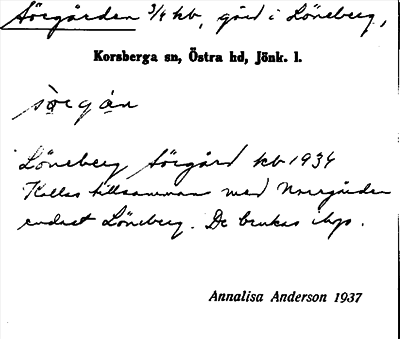 Sörgården 3/4 kb, gård i Löneberg,
Korsberga sn, Östra hd, Jönk. l.
sörgán
Löneberg Sörgård kb 1934
Kallas tillsammans med Norrgården
endast Löneberg. De brukas ihop.
Annalisa Anderson 1937